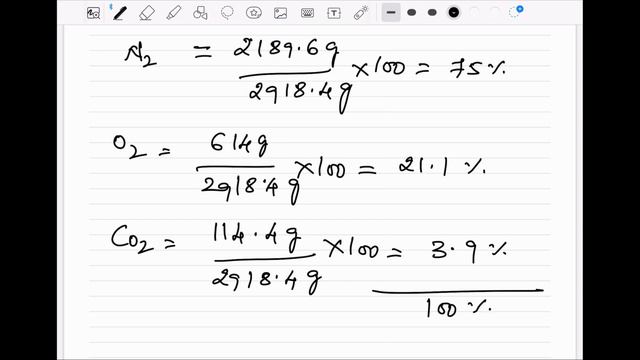 N2 = 2189.6g / 2918.4g × 100 = 75%
O2 = 614g / 2918.4g × 100 = 21.1 %
CO2 = 114.4g / 2918.4g × 100 = 3.9 %
100 %